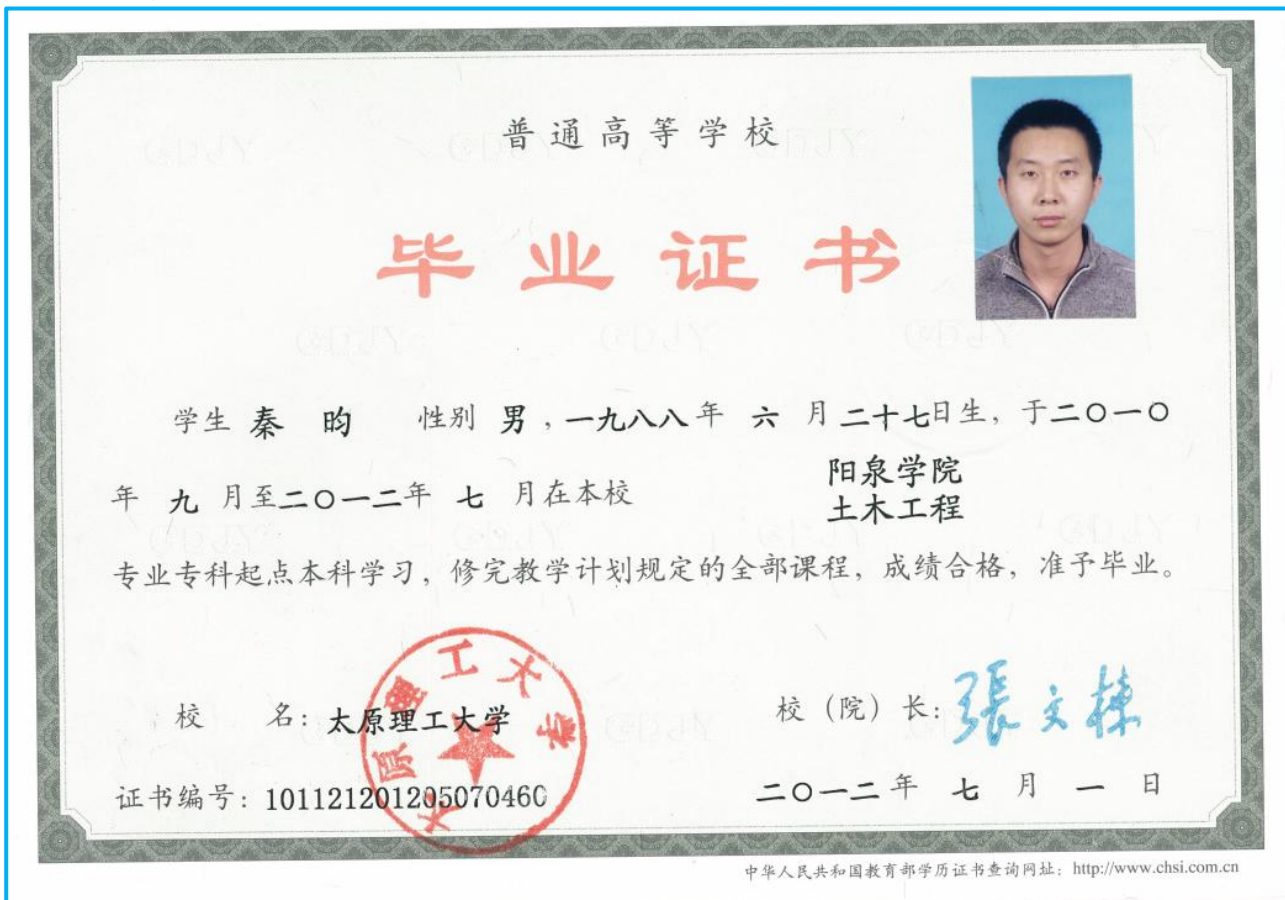 普通高等学校
毕业证书
学生 秦 昀 性别 男，一九八八年 六 月二十七日生，于二〇一〇
年 九 月至二〇一二年 七 月在本校 阳泉学院
土木工程
专业专科起点本科学习，修完教学计划规定的全部课程，成绩合格，准予毕业。
校 名：太原理工大学
太原理工大学
校（院）长：張文棟
证书编号：101121201205070460
二〇一二年 七 月 一 日
中华人民共和国教育部学历证书查询网址：http://www.chsi.com.cn